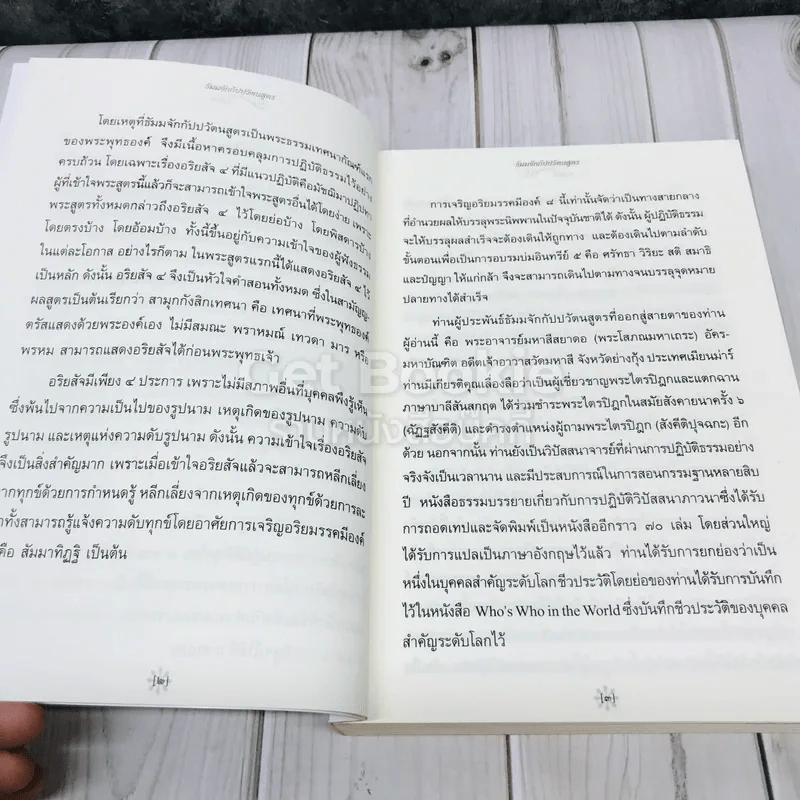 ธัมมจักกัปปวัตนสูตร
โดยเหตุที่ธัมมจักกัปปวัตนสูตรเป็นพระธรรมเทศนากัณฑ์แรก
ของพระพุทธองค์ จึงมีเนื้อหาครอบคลุมการปฏิบัติธรรมไว้อย่าง
ครบถ้วน โดยเฉพาะเรื่องอริยสัจ ๔ ที่มีแนวปฏิบัติคือมัชฌิมาปฏิปทา
ผู้ที่เข้าใจพระสูตรนี้แล้วก็จะสามารถเข้าใจพระสูตรอื่นได้โดยง่าย เพราะ
พระสูตรทั้งหมดกล่าวถึงอริยสัจ ๔ ไว้โดยย่อบ้าง โดยพิสดารบ้าง
โดยตรงบ้าง โดยอ้อมบ้าง ทั้งนี้ขึ้นอยู่กับความเข้าใจของผู้ฟังธรรม
ในแต่ละโอกาส อย่างไรก็ตาม ในพระสูตรแรกนี้ได้แสดงอริยสัจ ๔ ไว้
เป็นหลัก ดังนั้น อริยสัจ ๔ จึงเป็นหัวใจคำสอนทั้งหมด ซึ่งในสามัญญ-
ผลสูตรเป็นต้นเรียกว่า สามุกกังสิกเทศนา คือ เทศนาที่พระพุทธองค์
ตรัสแสดงด้วยพระองค์เอง ไม่มีสมณะ พราหมณ์ เทวดา มาร หรือ
พรหม สามารถแสดงอริยสัจได้ก่อนพระพุทธเจ้า
อริยสัจมีเพียง ๔ ประการ เพราะไม่มีสภาพอื่นที่บุคคลพึงรู้เห็น
ซึ่งพ้นไปจากความเป็นไปของรูปนาม เหตุเกิดของรูปนาม ความดับ
รูปนาม และเหตุแห่งความดับรูปนาม ดังนั้น ความเข้าใจเรื่องอริยสัจ
จึงเป็นสิ่งสำคัญมาก เพราะเมื่อเข้าใจอริยสัจแล้วจะสามารถหลีกเลี่ยง
จากทุกข์ด้วยการกำหนดรู้ หลีกเลี่ยงจากเหตุเกิดของทุกข์ด้วยการละ
ทั้งสามารถรู้แจ้งความดับทุกข์โดยอาศัยการเจริญอริยมรรคมีองค์
คือ สัมมาทิฏฐิ เป็นต้น
[๒]
ธัมมจักกัปปวัตนสูตร
การเจริญอริยมรรคมีองค์ ๘ นี้เท่านั้นจัดว่าเป็นทางสายกลาง
ที่อำนวยผลให้บรรลุพระนิพพานในปัจจุบันชาติได้ ดังนั้น ผู้ปฏิบัติธรรม
จะให้บรรลุผลสำเร็จจะต้องเดินให้ถูกทาง และต้องเดินไปตามลำดับ
ขั้นตอนเพื่อเป็นการอบรมบ่มอินทรีย์ ๕ คือ ศรัทธา วิริยะ สติ สมาธิ
และปัญญา ให้แก่กล้า จึงจะสามารถเดินไปตามทางจนบรรลุจุดหมาย
ปลายทางได้สำเร็จ
ท่านผู้ประพันธ์ธัมมจักกัปปวัตนสูตรที่ออกสู่สายตาของท่าน
ผู้อ่านนี้ คือ พระอาจารย์มหาสีสยาดอ (พระโสภณมหาเถระ) อัคร-
มหาบัณฑิต อดีตเจ้าอาวาสวัดมหาสี จังหวัดย่างกุ้ง ประเทศเมียนม่าร์
ท่านมีเกียรติคุณเลื่องลือว่าเป็นผู้เชี่ยวชาญพระไตรปิฎกและแตกฉาน
ภาษาบาลีสันสกฤต ได้ร่วมชำระพระไตรปิฎกในสมัยสังคายนาครั้ง ๖
(ฉัฏฐสังคีติ) และดำรงตำแหน่งผู้ถามพระไตรปิฎก (สังคีติปุจฉกะ) อีก
ด้วย นอกจากนั้น ท่านยังเป็นวิปัสสนาจารย์ที่ผ่านการปฏิบัติธรรมอย่าง
จริงจังเป็นเวลานาน และมีประสบการณ์ในการสอนกรรมฐานหลายสิบ
ปี หนังสือธรรมบรรยายเกี่ยวกับการปฏิบัติวิปัสสนาภาวนาซึ่งได้รับ
การถอดเทปและจัดพิมพ์เป็นหนังสืออีกราว ๗๐ เล่ม โดยส่วนใหญ่
ได้รับการแปลเป็นภาษาอังกฤษไว้แล้ว ท่านได้รับการยกย่องว่าเป็น
หนึ่งในบุคคลสำคัญระดับโลก ชีวประวัติโดยย่อของท่านได้รับการบันทึก
ไว้ในหนังสือ Who's Who in the World ซึ่งบันทึกชีวประวัติของบุคคล
สำคัญระดับโลกไว้
[๓]
Get Bookie